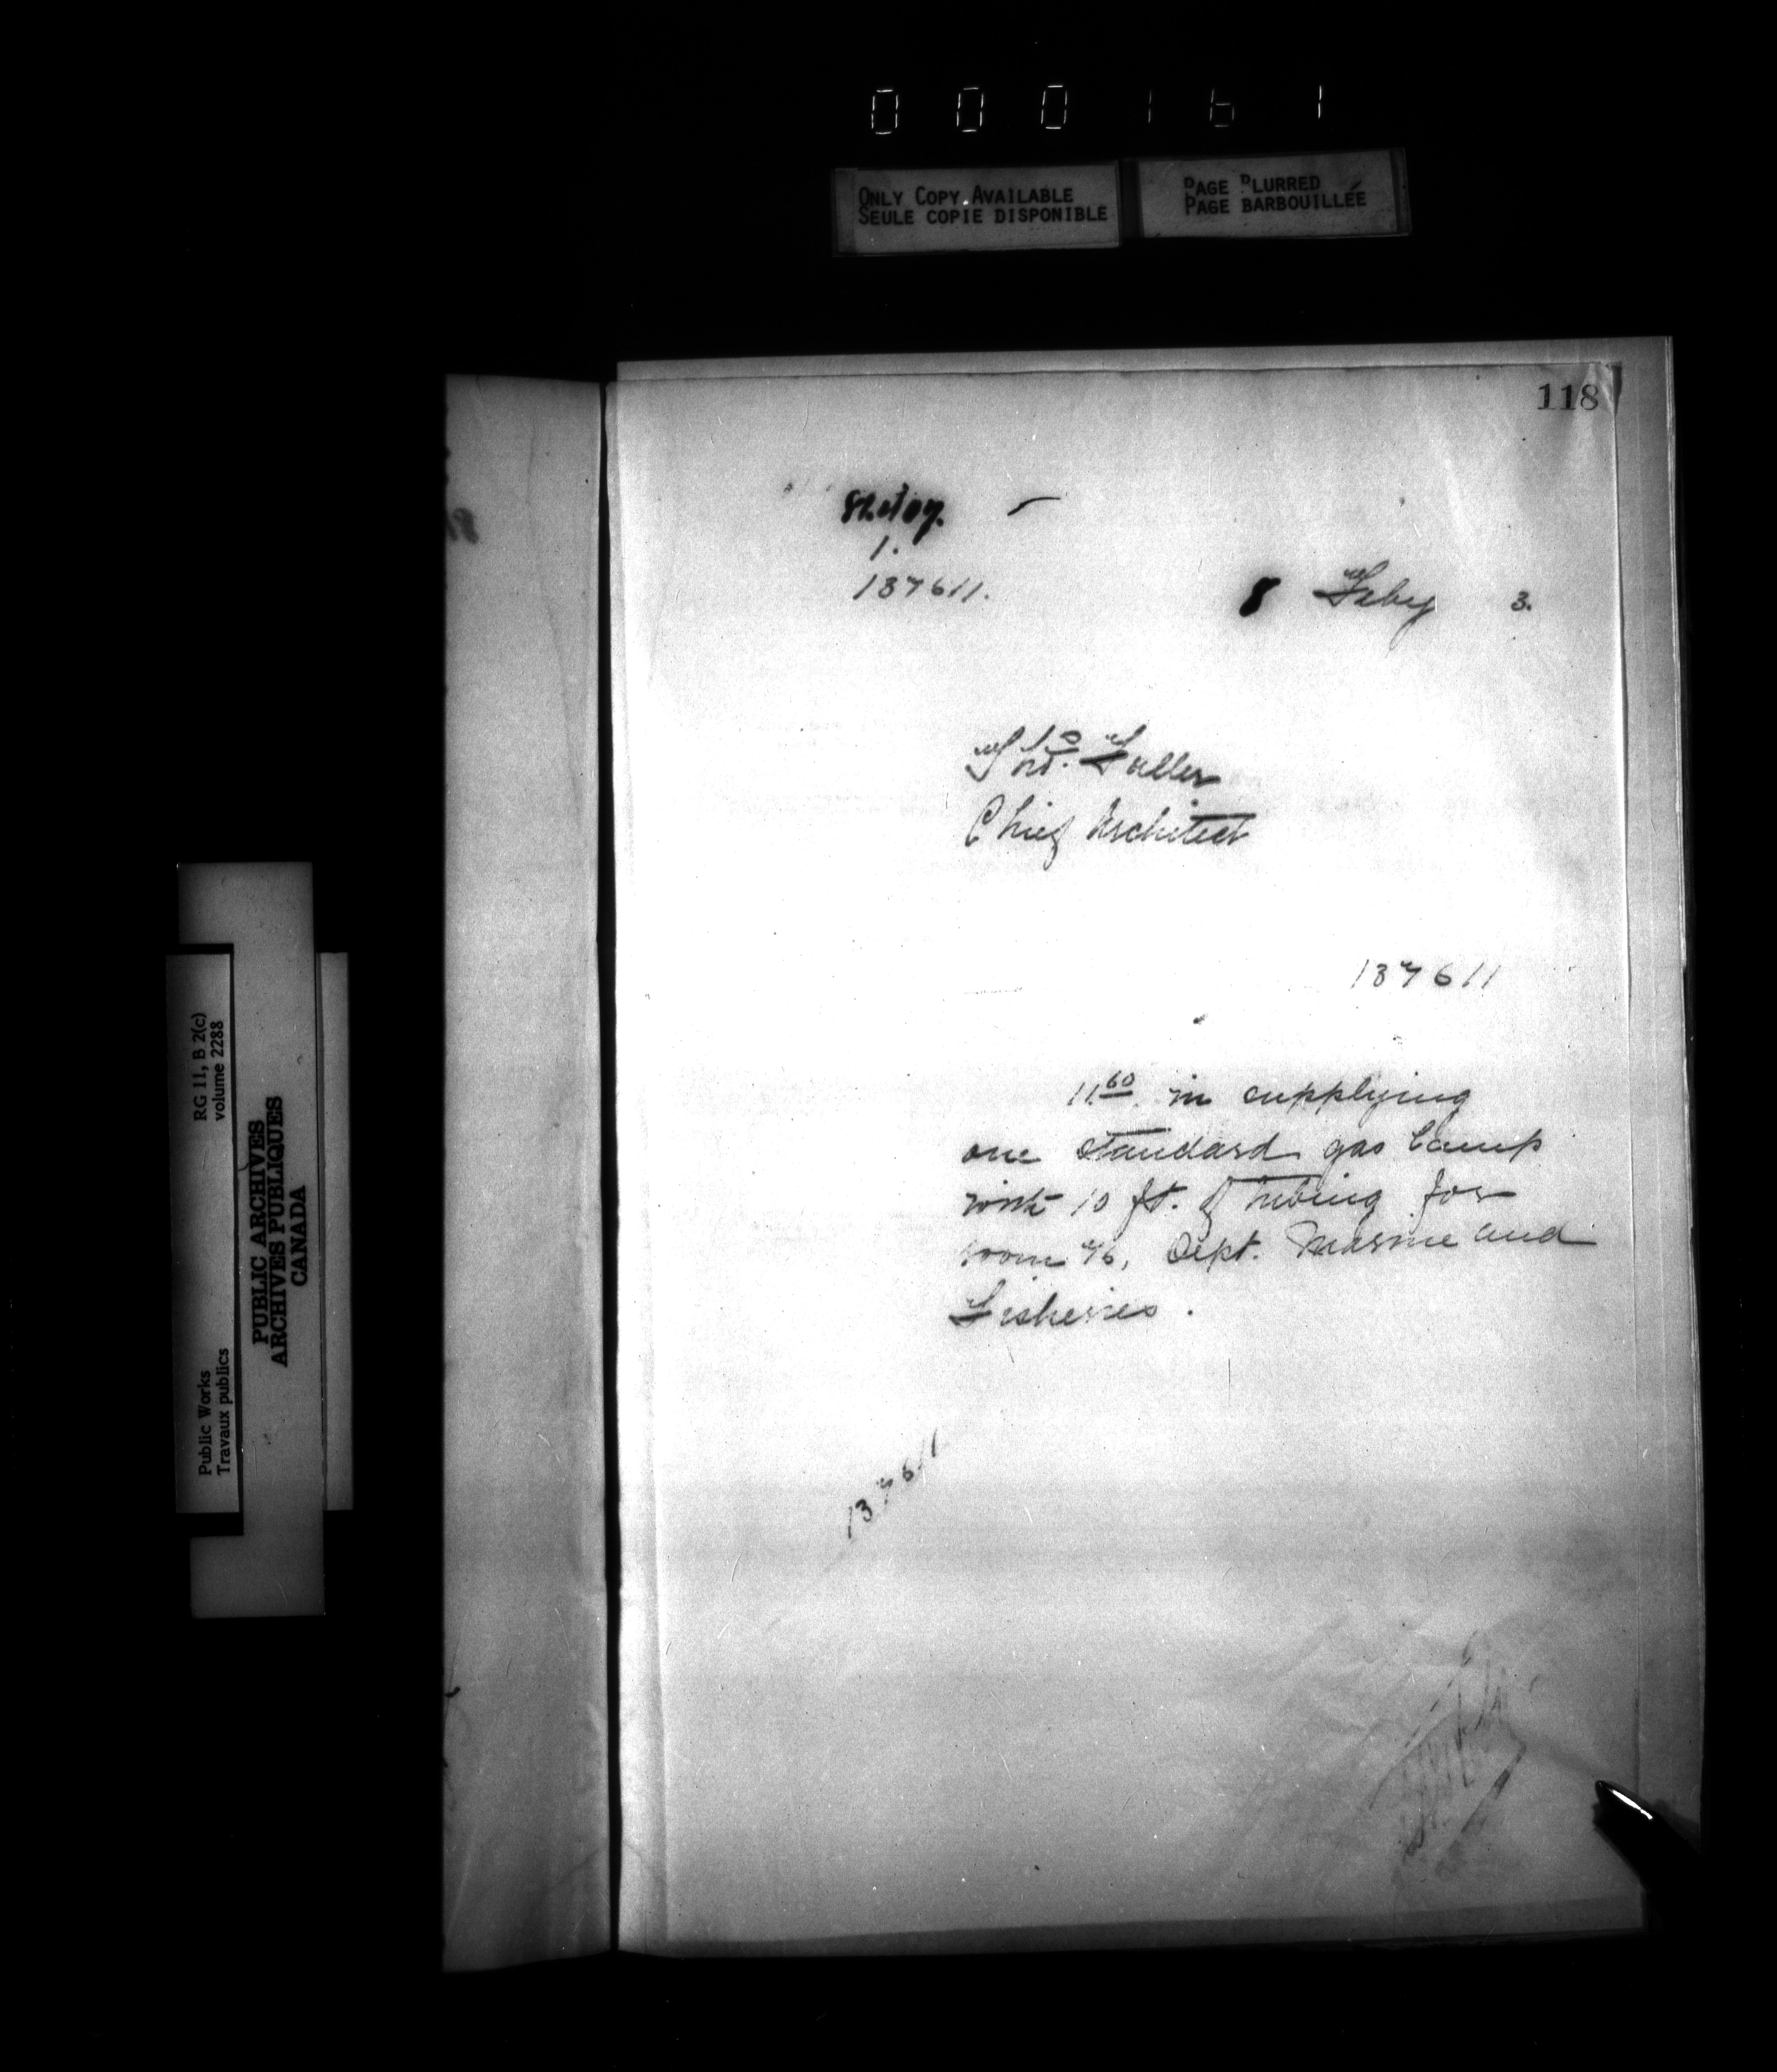 000161
ONLY COPY AVAILABLE
SEULE COPIE DISPONIBLE
PAGE BLURRED
PAGE BARBOUILLÉE
118
1.
137611.
8 Feby 3.
Thos. Fuller
Chief Architect
137611
11.60 in supplying
one standard gas lamp
with 10 ft. of tubing for
room 76, Dept. Marine and
Fisheries.
137611
RG 11, B 2(c)
volume 2288
Public Works
Travaux publics
PUBLIC ARCHIVES
ARCHIVES PUBLIQUES
CANADA